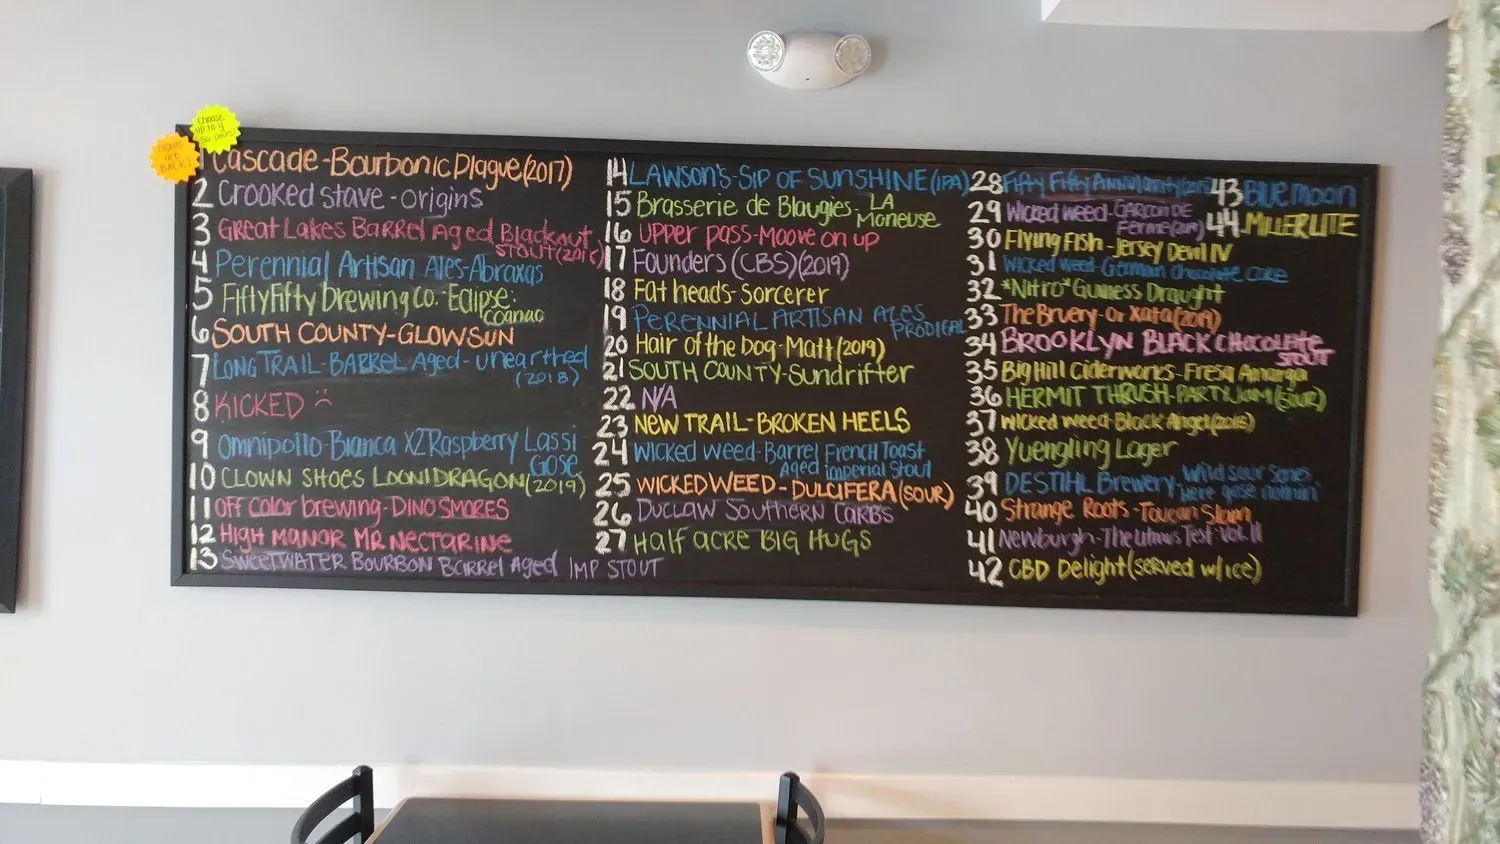 Choose
up to 4
5oz pours!
Flights
are
BACK!
1 Cascade-Bourbonic Plague(2017)
2 Crooked stave-origins
3 Great Lakes Barrel Aged Blackout
STOUT
4 Perennial Artisan Ales-Abraxas
5 FiftyFifty Brewing Co.-Eclipse:
Cognac
6 SOUTH COUNTY-GLOWSUN
7 LONG TRAIL-BARREL Aged-unearthed
(2018)
8 KICKED
9 Omnipollo-Bianca X2Raspberry Lassi
Gose
10 CLOWN SHOES LOONIDRAGON(2019)
11 Off Color brewing-DINOSMORES
12 HIGH MANOR MR NECTARINE
13 SWEETWATER BOURBON BARREL Aged IMP STOUT
14 LAWSON'S-SIP OF SUNSHINE(IPA)
15 Brasserie de Blaugies-LA
Moneuse
16 upper pass-Moove on up
17 Founders (CBS)(2019)
18 Fat heads-Sorcerer
19 PERENNIAL ARTISAN ALES
PRODIGAL
20 Hair of the Dog-Matt(2019)
21 SOUTH COUNTY-Sundrifter
22 N/A
23 NEW TRAIL-BROKEN HEELS
24 WICKED WEED-Barrel French Toast
Aged imperial Stout
25 WICKED WEED-DULCIFERA(SOUR)
26 DUCLAW SOUTHERN CARBS
27 Half acre BIG HUGS
28 Fifty Fifty
29 Wicked weed-GARCON DE
Ferme
30 Flying Fish-Jersey Devil IV
31 Wicked weed-German Chocolate Cake
32 *Nitro*Guiness Draught
33 The Bruery-Or Xata(2019)
34 BROOKLYN BLACK CHOCOLATE
STOUT
35 Big Hill Ciderworks-Fresa Amarga
36 HERMIT THRUSH-PARTY JAM(SOUR)
37 wicked weed-Black Angel(2018)
38 Yuengling Lager
39 DESTIHL Brewery-Wild sour series
here gose nothin'
40 Strange Roots-Toucan Slam
41 Newburgh-The Litmus Test Vol. II
42 CBD Delight(served w/ice)
43 Blue Moon
44 MILLER LITE